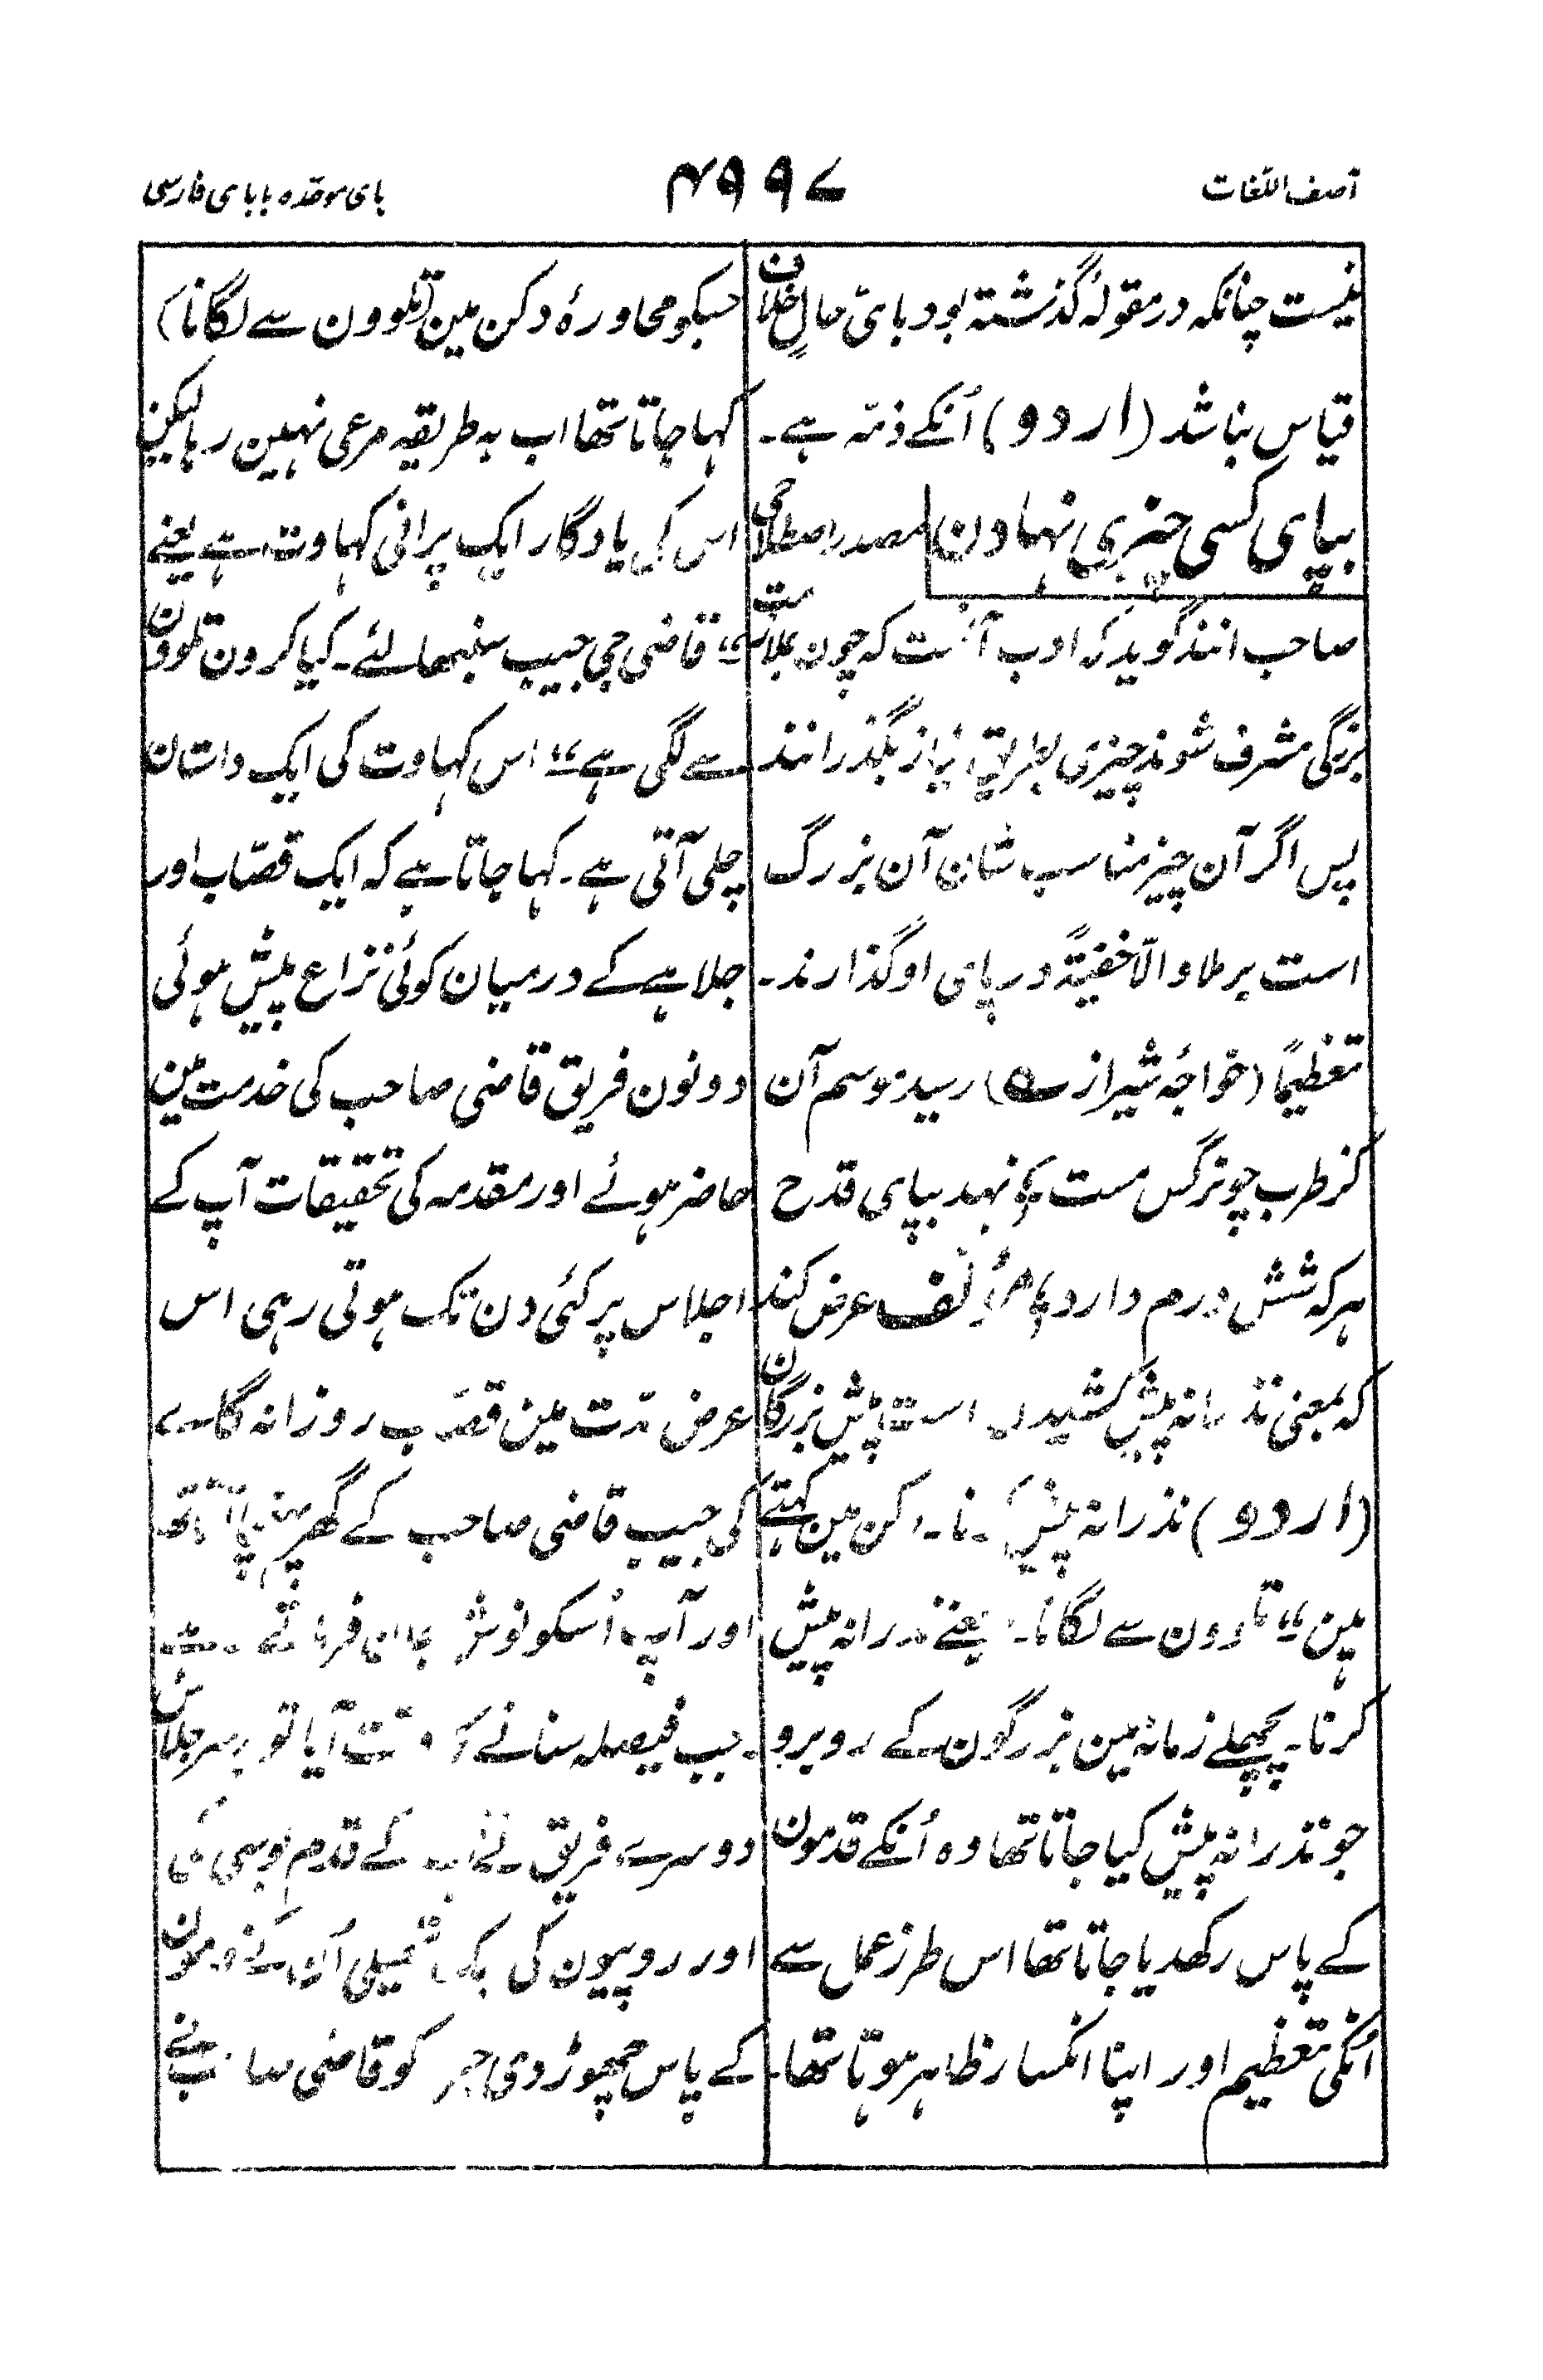 آصف اللغات
۴۹۹۷
بای موحّدہ با بای فارسی
نیست چنانکہ در مقولۂ گذشتہ بود بایّ حالٍ خلان
قیاس نباشد (اردو) اُنکے ذمّہ ہے۔
بپای کسی چیزی نہادن مصدر اصطلاحی
صاحب انند گوید کہ ادب آنست کہ چون بملازمت
بزرگی مشرف شوند چیزی بطریق نیاز بگذرانند
پس اگر آن چیز مناسب شان آن بزرگ
است برملا و الّا خفیتہً در پای او گذارند۔
تعظیماً (خواجۂ شیراز ؎) رسید موسم آن
کز طرب چو نرگس مست ؛ نہد بپای قدح
ہر کہ شش درم دارد ؛ مؤلف عرض کند
کہ بمعنی نذرانہ پیش کشیدن است پیش بزرگان
(اردو) نذرانہ پیش کرنا۔ دکن مین کہتے
ہین ؎؎ تلوون سے لگانا۔ یعنے نذرانہ پیش
کرنا۔ پچھلے زمانہ مین بزرگون کے روبرو
جو نذرانہ پیش کیا جاتا تھا وہ اُنکے قدمون
کے پاس رکھدیا جاتا تھا اس طرز عمل سے
اُنکی تعظیم اور اپنا انکسار ظاہر ہوتا تھا۔
جسکو محاورۂ دکن مین (تلوون سے لگانا)
کہا جاتا تھا اب یہ طریقہ مرعی نہین رہا لیکن
اس کی یادگار ایک پرانی کہاوت ہے یعنے
قاضی جی جیب سنبھالئے۔ کیا کرون تلوون
سے لگی ہے ؎؎ اس کہاوت کی ایک داستان
چلی آتی ہے۔ کہا جاتا ہے کہ ایک قصّاب اور
جلاہے کے درمیان کوئی نزاع پیش ہوئی
دونون فریق قاضی صاحب کی خدمت مین
حاضر ہوئے اور مقدمہ کی تحقیقات آپ کے
اجلاس پر کئی دن تک ہوتی رہی اس
عرض مدّت مین قصّاب روزانہ گائے
کی جیب قاضی صاحب کے گھر پہنچاتا تھا
اور آپ اُسکو نوش جان فرماتے تھے
۔جب فیصلہ سنانے کا وقت آیا تو برسر اجلاس
دوسرے فریق نے آپ کے قدم بوسی کی
اور روپیون کی ایک تھیلی اُنکے قدمون
کے پاس چھوڑ دی جس کو قاضی صاحب نے